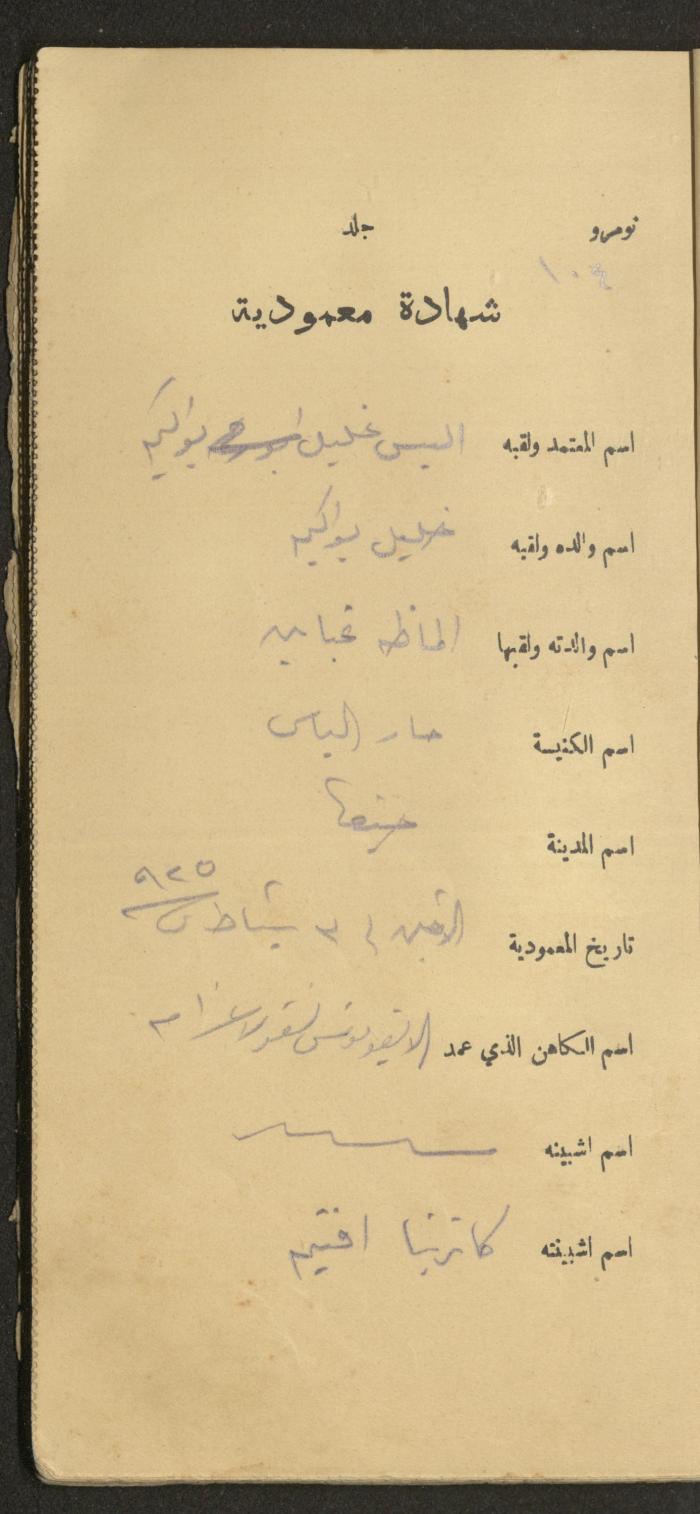 نومرو جلد
١٠٤
شهادة معمودية
اسم المعتمد ولقبه اليس خليل يواكيم
اسم والده ولقبه خليل يواكيم
اسم والدته ولقبها الماظه
اسم الكنيسة مار الياس
اسم المدينة
تاريخ المعمودية الاثنين في ٣ شباط س ٩٢٥
اسم الكاهن الذي عمد الايقونومس نقولا
اسم اشبينه
اسم اشبينته كاترينا افتيم